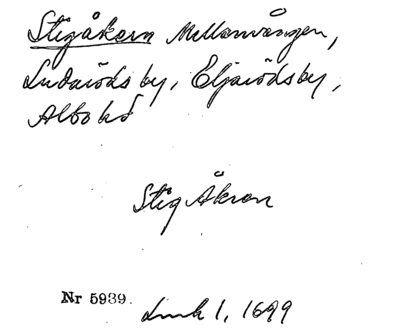 Stigåkern Mellanvången,
Ludaröds by, Eljarödsby,
Albo hd
Stig Åkran
Nr 5939.
Lmk 1, 1699